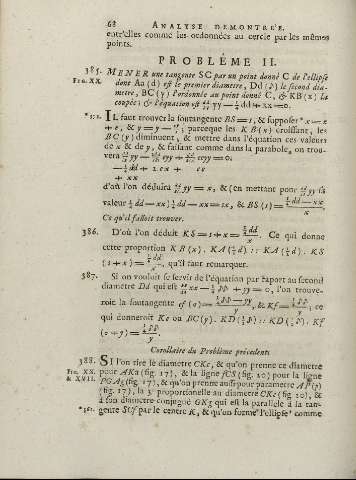 68 ANALYSE DEMONTRÉE.
entr'elles comme les ordonnées au cercle par les mêmes
points.
PROBLÊME II.
385. MENER une tangente SC par un point donné C de l'ellipse
FIG. XX. dont Aa (d) est le premier diametre, Dd (δ) le second dia-
metre, BC (y) l'ordonnée au point donné C, & KB (x) la
coupée; & l'équation est yy — ¼dd + xx = 0.
IL faut trouver la soutangente BS = s, & supposer x = x
+ e, & y = y — ; parceque les KB (x) croissant, les
BC (y) diminuent, & mettre dans l'équation ces valeurs
de x & de y, & faisant comme dans la parabole, on trou-
vera
— ¼dd + 2ex + ee
+ xx
d'où l'on déduira yy = sx, & (en mettant pour yy sa
valeur ¼dd — xx) ¼dd — xx = sx, & BS (s) = ¼dd — xx / x.
Ce qu'il falloit trouver.
386. D'où l'on déduit KS = s + x = ¼dd / x. Ce qui donne
cette proportion KB (x). KA (½d) :: KA (½d). KS
(s + x) = ¼dd / x, qu'il faut remarquer.
387. Si on vouloit se servir de l'équation par raport au second
diametre Dd qui est xx — ¼δδ + yy = 0, l'on trouve-
roit la soutangente cf (σ) = ¼δδ — yy / y, & Kf = ¼δδ / y; ce
qui donneroit Kc ou BC (y). KD (½δ) :: KD (½δ). Kf
(σ + y) = ¼δδ / y.
Corollaire du Problême précedent
388. SI l'on tire le diametre CKc, & qu'on prenne ce diametre
FIG. XX. pour AKa (fig. 17), & la ligne fCS (fig. 20) pour la ligne
& XVII. (fig. 17), & qu'on prenne aussi pour parametre
(fig. 17), la 3ᵉ proportionelle au diametre CKc (fig. 20), &
à son diametre conjugué GKg qui est la parallele à la tan-
gente SCf par le centre K, & qu'on forme l'ellipse comme